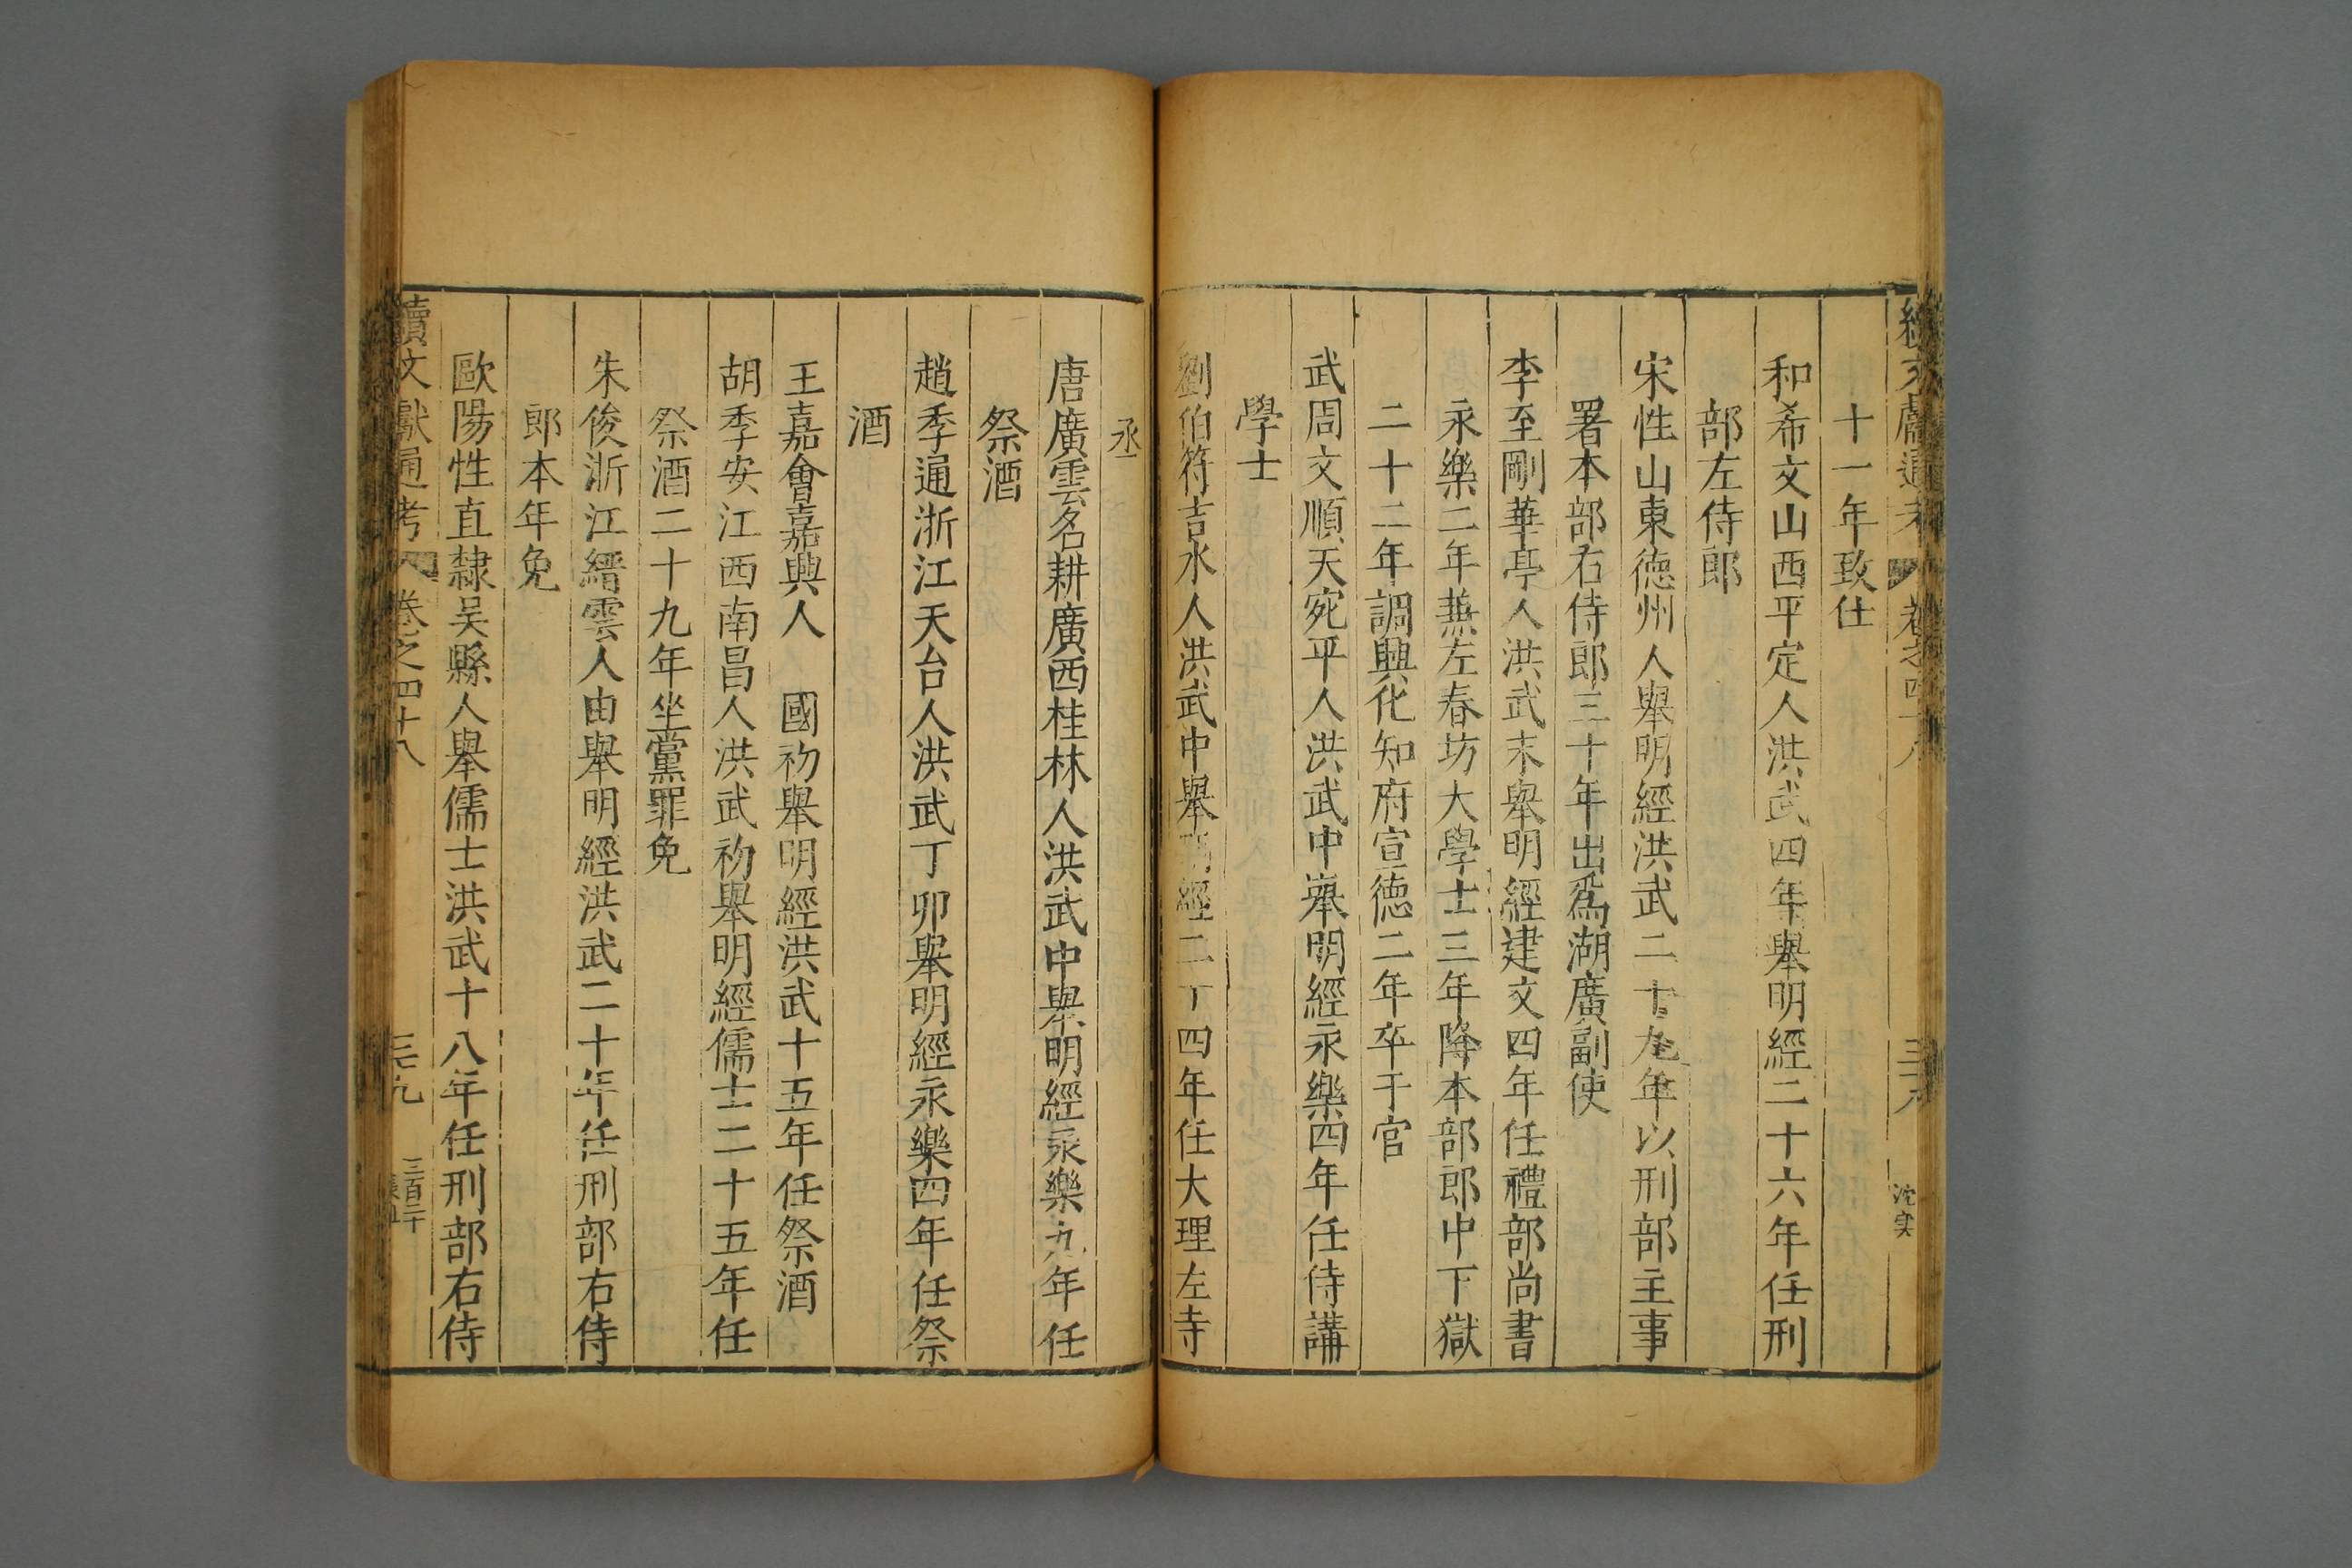 續文獻通考 卷之四十八 三十八 沈実
十一年致仕
和希文山西平定人洪武四年舉明經二十六年任刑
部左侍郎
宋性山東德州人舉明經洪武二十九年以刑部主事
署本部右侍郎三十年出爲湖廣副使
李至剛華亭人洪武末舉明經建文四年任禮部尚書
永樂二年兼左春坊大學士三年降本部郎中下獄
二十二年調興化知府宣德二年卒于官
武周文順天宛平人洪武中舉明經永樂四年任侍講
學士
劉伯符吉水人洪武中舉明經二十四年任大理左寺
丞
唐廣雲名耕廣西桂林人洪武中舉明經永樂九年任
祭酒
趙季通浙江天台人洪武丁卯舉明經永樂四年任祭
酒
王嘉會嘉興人 國初舉明經洪武十五年任祭酒
胡季安江西南昌人洪武初舉明經儒士二十五年任
祭酒二十九年坐黨罪免
朱俊浙江縉雲人由舉明經洪武二十年任刑部右侍
郎本年免
歐陽性直隸吴縣人舉儒士洪武十八年任刑部右侍
續文獻通考 卷之四十八 三十九 三百二十